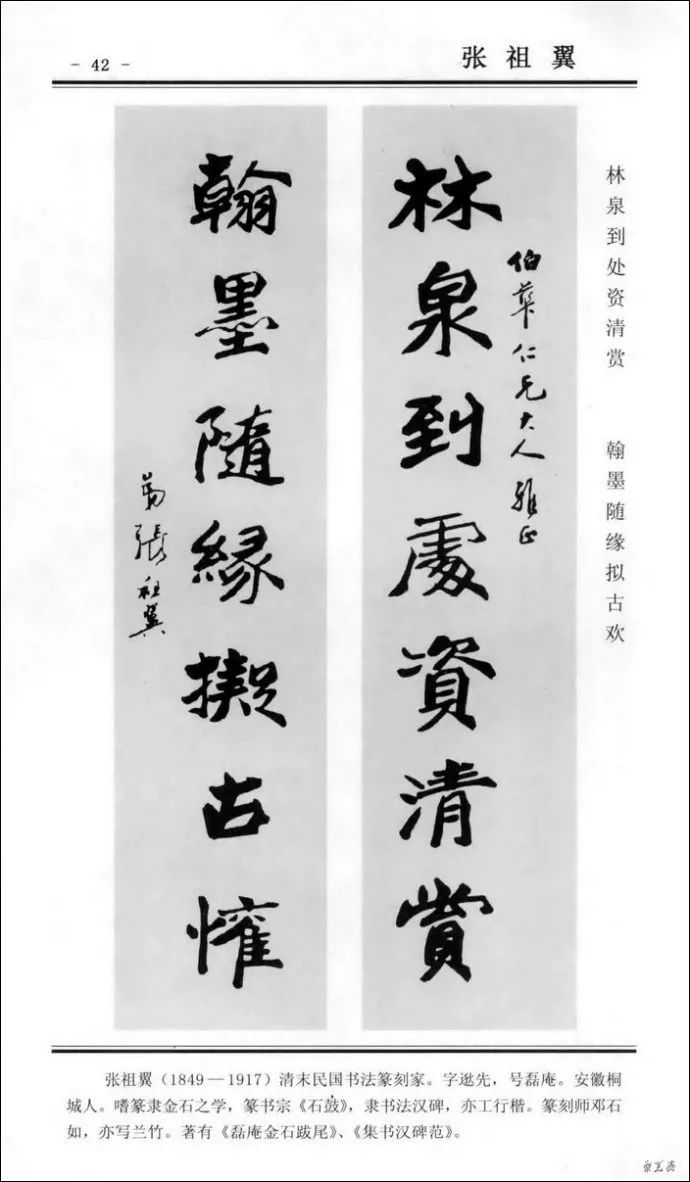 - 42 -
张祖翼
林泉到处资清赏 翰墨随缘拟古欢
林泉到處資清賞
伯華仁兄大人雅正
翰墨隨緣擬古懽
張祖翼
张祖翼（1849—1917）清末民国书法篆刻家。字逖先，号磊庵。安徽桐
城人。嗜篆隶金石之学，篆书宗《石鼓》，隶书法汉碑，亦工行楷。篆刻师邓石
如，亦写兰竹。著有《磊庵金石跋尾》、《集书汉碑范》。